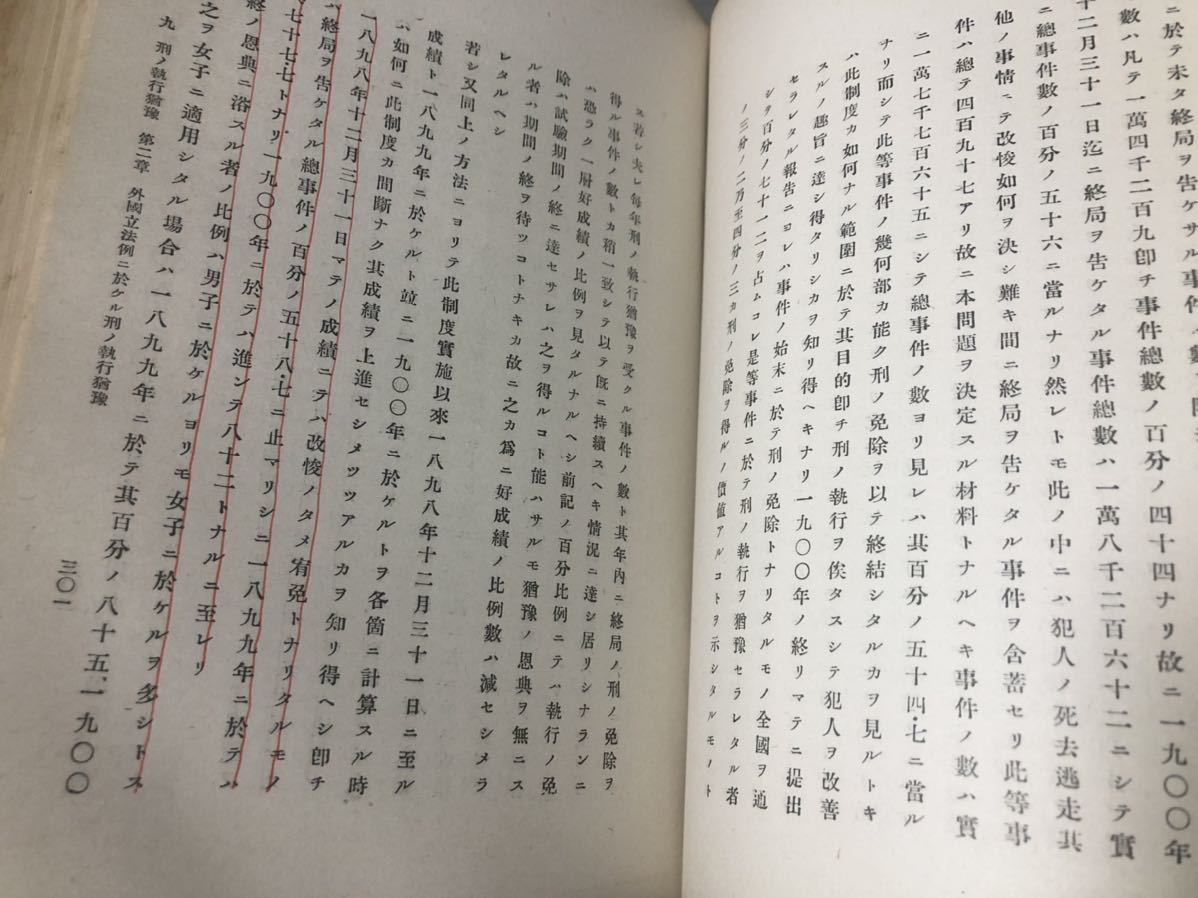 ニ於テ未タ終局ヲ告ケサル事件
數ハ凡テ一萬四千二百九卽チ事件總數ノ百分ノ四十四ナリ故ニ一九〇〇年
十二月三十一日迄ニ終局ヲ告ケタル事件總數ハ一萬八千二百六十二ニシテ實
ニ總事件數ノ百分ノ五十六ニ當ルナリ然レトモ此ノ中ニハ犯人ノ死去逃走其
他ノ事情ニテ改悛如何ヲ決シ難キ間ニ終局ヲ告ケタル事件ヲ含蓄セリ此等事
件ハ總テ四百九十七アリ故ニ本問題ヲ決定スル材料トナルヘキ事件ノ數ハ實
ニ一萬七千七百六十五ニシテ總事件ノ數ヨリ見レハ其百分ノ五十四・七ニ當ル
ナリ而シテ此等事件ノ幾何部カ能ク刑ノ免除ヲ以テ終結シタルカヲ見ルトキ
ハ此制度カ如何ナル範圍ニ於テ其目的卽チ刑ノ執行ヲ俟タスシテ犯人ヲ改善
スルノ趣旨ニ達シ得タリシカヲ知リ得ヘキナリ一九〇〇年ノ終リマテニ提出
セラレタル報告ニヨレハ事件ノ始末ニ於テ刑ノ免除トナリタルモノ全國ヲ通
シテ百分ノ七十一・二ヲ占ムコレ是等事件ニ於テ刑ノ執行ヲ猶豫セラレタル者
ノ三分ノ二乃至四分ノ三カ刑ノ免除ヲ得ルノ價値アルコトヲ示シタルモノト
ス若シ夫レ每年刑ノ執行猶豫ヲ受クル事件ノ數ト其年內ニ終局ノ刑ノ免除ヲ
得ル事件ノ數トカ稍一致シテ以テ旣ニ持續スヘキ情況ニ達シ居リシナランニ
ハ恐ラク一層好成績ノ比例ヲ見タルナルヘシ前記ノ百分比例ニテハ執行ノ免
除ハ試驗期間ノ終ニ達セサレハ之ヲ得ルコト能ハサルモ猶豫ノ恩典ヲ無ニス
ル者ハ期間ノ終ヲ待ツコトナキカ故ニ之カ爲ニ好成績ノ比例數ハ減セシメラ
レタルヘシ
若シ又同上ノ方法ニヨリテ此制度實施以來一八九八年十二月三十一日ニ至ル
成績ト一八九九年ニ於ケルト竝ニ一九〇〇年ニ於ケルトヲ各箇ニ計算スル時
ハ如何ニ此制度カ間斷ナク其成績ヲ上進セシメツツアルカヲ知リ得ヘシ卽チ
一八九八年十二月三十一日マテノ成績ニテハ改悛ノタメ宥免トナリタルモノ
ハ終局ヲ告ケタル總事件ノ百分ノ五十八・七ニ止マリシニ一八九九年ニ於テハ
七十七・七トナリ一九〇〇年ニ於テハ進ンテ八十二トナルニ至レリ
終ノ恩典ニ浴スル者ノ比例ハ男子ニ於ケルヨリモ女子ニ於ケルヲ多シトス
之ヲ女子ニ適用シタル場合ハ一八九九年ニ於テ其百分ノ八十五、一九〇〇
九 刑ノ執行猶豫 第二章 外國立法例ニ於ケル刑ノ執行猶豫
三〇一